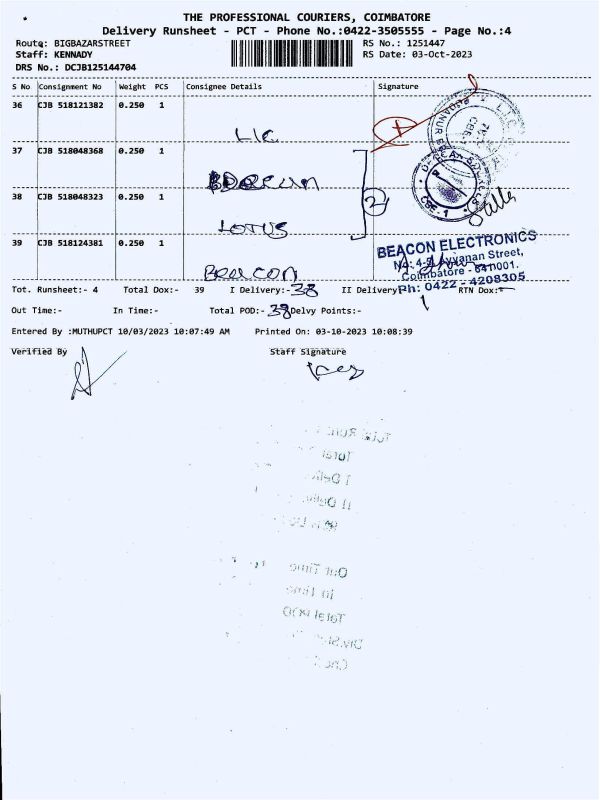 THE PROFESSIONAL COURIERS, COIMBATORE
Delivery Runsheet - PCT - Phone No.:0422-3505555 - Page No.:4
Route: BIGBAZARSTREET
RS No.: 1251447
Staff: KENNADY
RS Date: 03-Oct-2023
DRS No.: DCJB125144704
S No Consignment No Weight PCS Consignee Details Signature
36 CJB 518121382 0.250 1
LIC
37 CJB 518048368 0.250 1
38 CJB 518048323 0.250 1
2
LOTUS
39 CJB 518124381 0.250 1
BEACON ELECTRONICS
Coimbatore - 641001.
Ph: 0422 - 4208305
BEACON
Tot. Runsheet:- 4 Total Dox:- 39 I Delivery:- 38 II Delivery RTN Dox:-
1
Out Time:- In Time:- Total POD:- 38 Delvy Points:-
Entered By :MUTHUPCT 10/03/2023 10:07:49 AM Printed On: 03-10-2023 10:08:39
Verified By Staff Signature